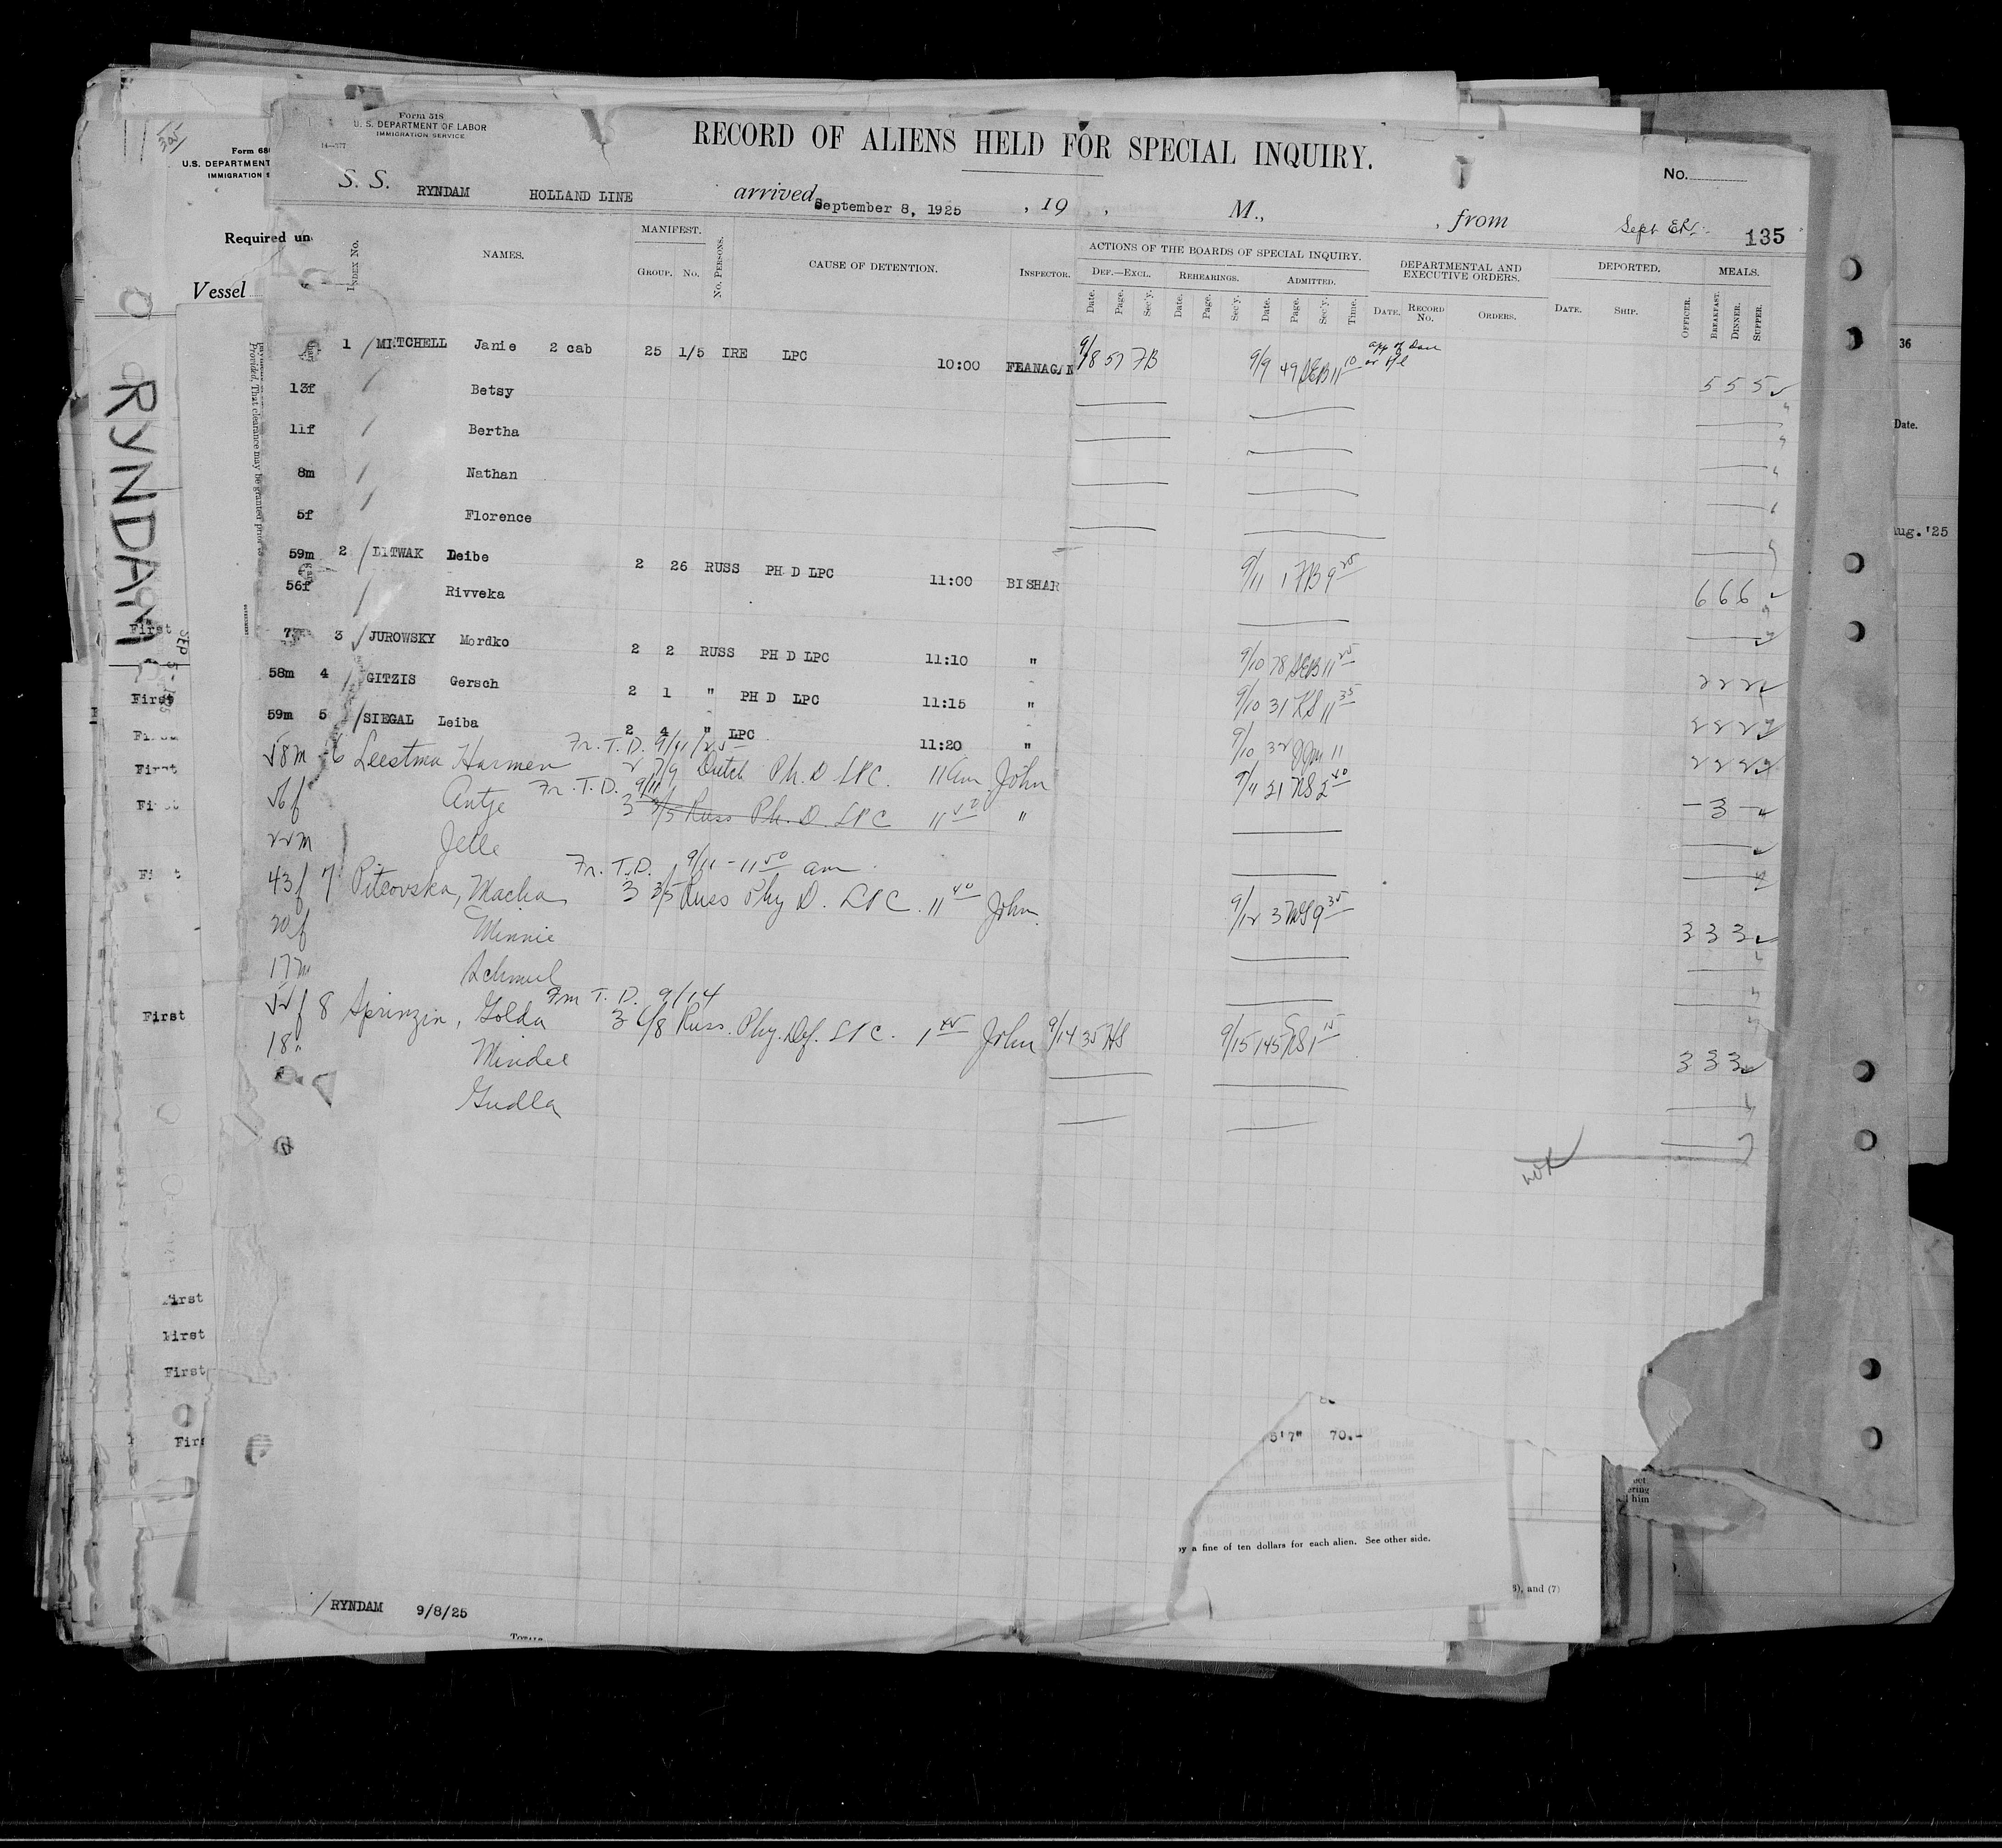 Form 518
U. S. DEPARTMENT OF LABOR
IMMIGRATION SERVICE
14—577
RECORD OF ALIENS HELD FOR SPECIAL INQUIRY.
No.
Form 68
U.S. DEPARTMENT
IMMIGRATION S
S. S. RYNDAM HOLLAND LINE arrived September 8, 1925 , 19 , M., , from
135
Required un
Vessel
INDEX No. NAMES. MANIFEST. GROUP. No. No. PERSONS. CAUSE OF DETENTION. INSPECTOR.
ACTIONS OF THE BOARDS OF SPECIAL INQUIRY. DEF.—EXCL. REHEARINGS. ADMITTED.
Date. Page. Sec'y. Date. Page. Sec'y. Date. Page. Sec'y. Time.
DEPARTMENTAL AND EXECUTIVE ORDERS. DATE. RECORD No. ORDERS.
DEPORTED. DATE. SHIP. OFFICER. MEALS. BREAKFAST. DINNER. SUPPER.
1 / MITCHELL Janie 2 cab 25 1/5 IRE LPC 10:00 FLANAGAN 9/8 57 FB 9/9 49 SEB 11 10 5 5 5
13f / Betsy
11f / Bertha
8m / Nathan
5f / Florence
59m 2 / LITWAK Leibe 2 26 RUSS PH D LPC 11:00 BISHAR 9/11 1 FB 9 25 6 6 6
56f / Rivveka
3 JUROWSKY Mordko 2 2 RUSS PH D LPC 11:10 " 9/10 78 SEB 11 25 2 2 2
58m 4 / GITZIS Gersch 2 1 " PH D LPC 11:15 " 9/10 31 KS 11 35 2 2 2
59m 5 / SIEGAL Leiba 2 4 " LPC 11:20 " 9/10 32 11 2 2 2
Fr. T. D. 9/11/25
58m 6 Leestma Harmen 2 7/9 Dutch Ph. D LPC. 11 am John 9/11 21 KS 2 40 – 3 –
Fr. T. D. 9/11
56f Antje 3 3/5 Russ Ph. D. LPC 11 50 "
22m Jelle
Fr. T.D. 9/11 - 11 50 am
43f 7 Pitcovska, Macha 3 3/5 Russ Phy D. LPC. 11 40 John 9/12 3 9 35 3 3 3
20f Minnie
17m Schmul
Fm T. D. 9/14
52f 8 Sprinzin, Golda 3 6/8 Russ. Phy. Def. LPC. 1 45 John 9/14 35 HS 9/15 145 KS 1 15 3 3 3
18" Mindel
Gudla
RYNDAM
First
First
First
First
First
First
First
First
36
Date.
Aug. '25
5'7" 70.-
by a fine of ten dollars for each alien. See other side.
3), and (7)
/ RYNDAM 9/8/25
TOTALS